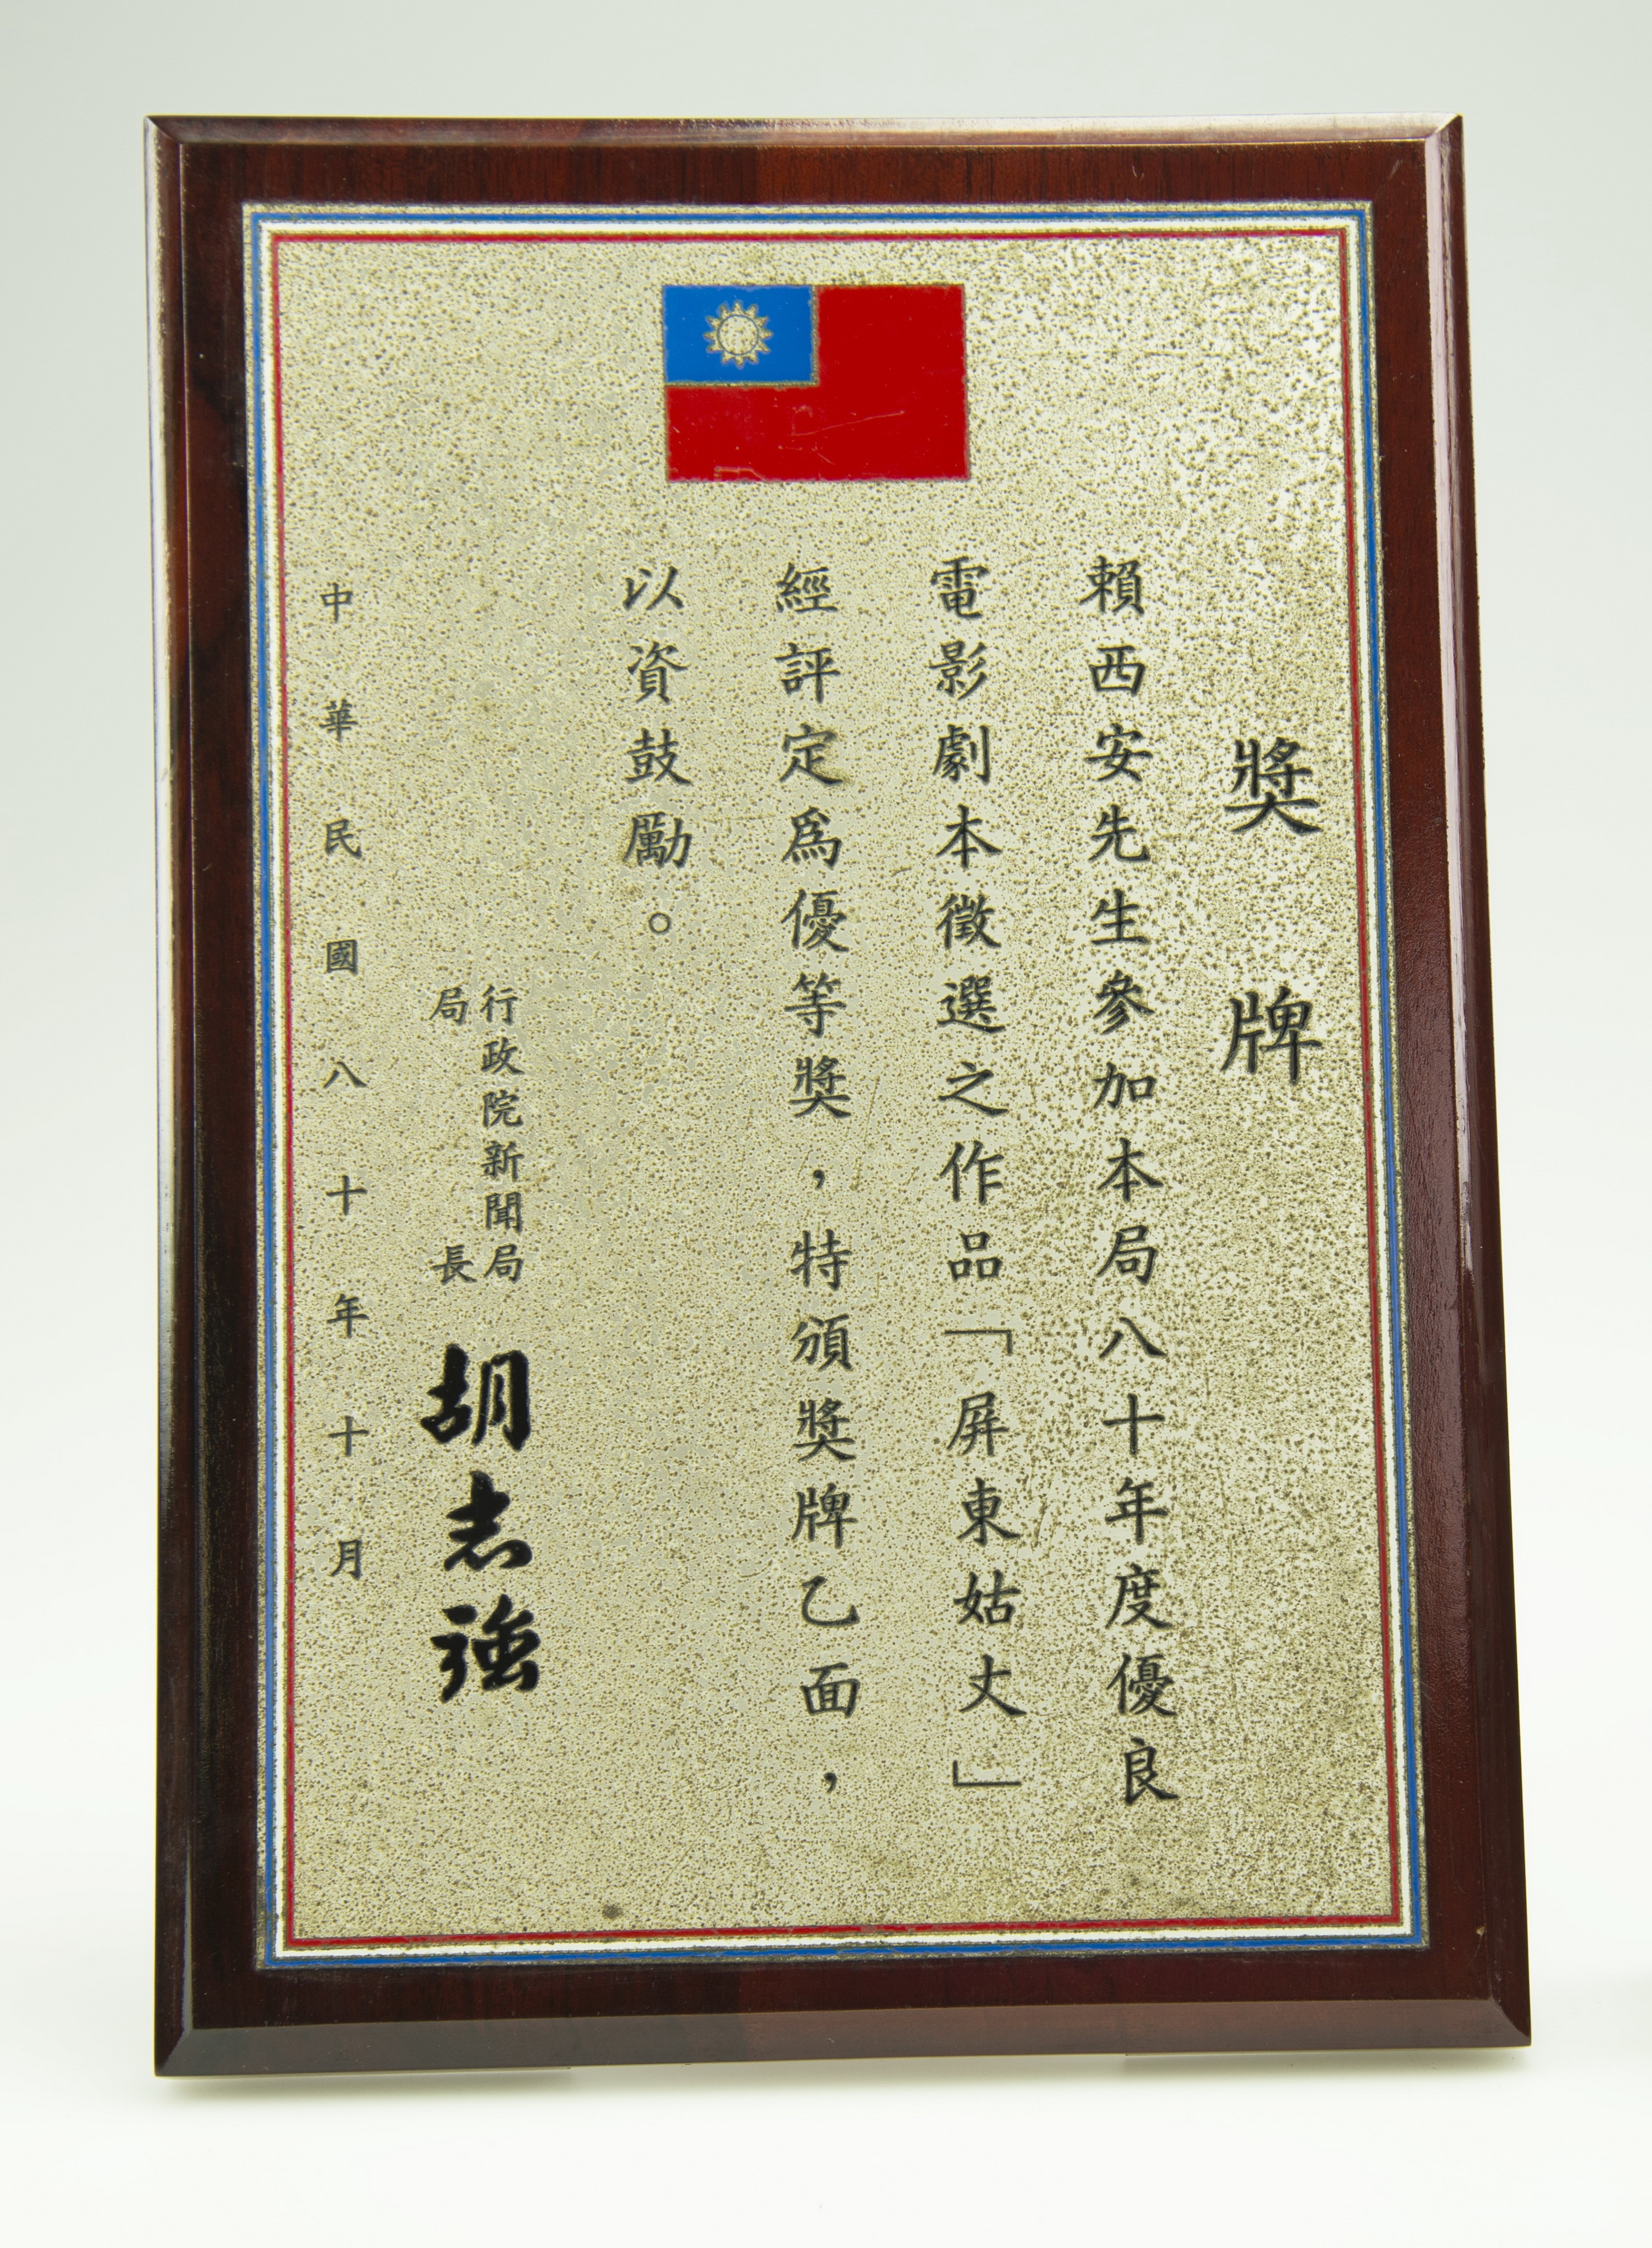 獎牌
賴西安先生參加本局八十年度優良
電影劇本徵選之作品「屏東姑丈」
經評定為優等獎，特頒獎牌乙面，
以資鼓勵。
行政院新聞局
局長
胡志強
中華民國八十年十月